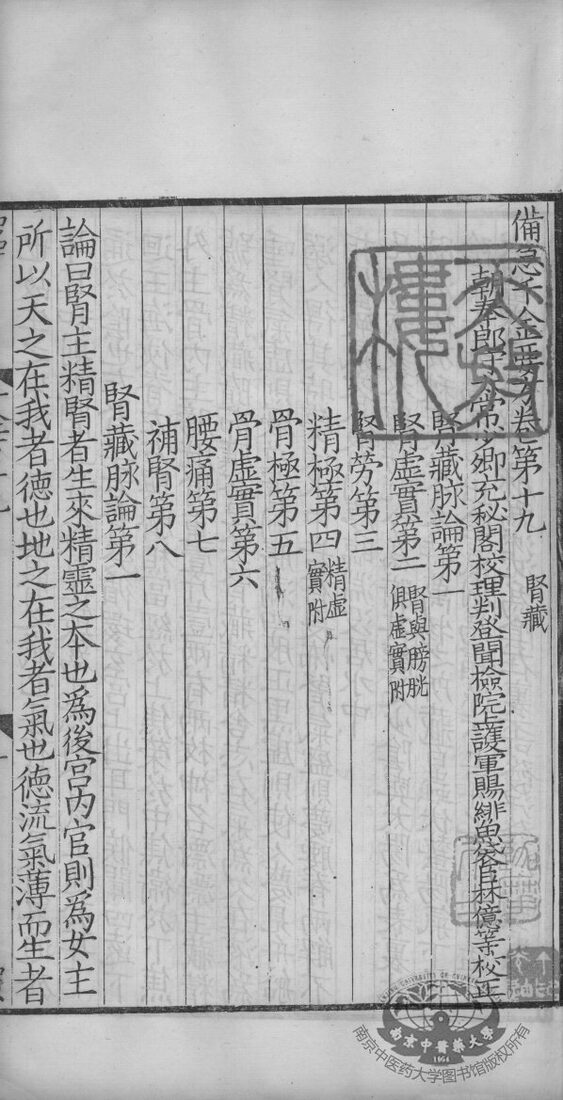 備急千金要方卷第十九 腎藏
朝奉郎守太常少卿充秘閣校理判登聞檢院上護軍賜緋魚袋臣林億等校正
腎藏脉論第一
腎虛實第二 腎與膀胱俱虛實附
腎勞第三
精極第四 精虛實附
骨極第五
骨虛實第六
腰痛第七
補腎第八
腎藏脉論第一
論曰腎主精腎者生來精靈之本也為後宮內官則為女主
所以天之在我者德也地之在我者氣也德流氣薄而生者
南京中醫藥大學
1954
南京中医药大学图书馆版权所有